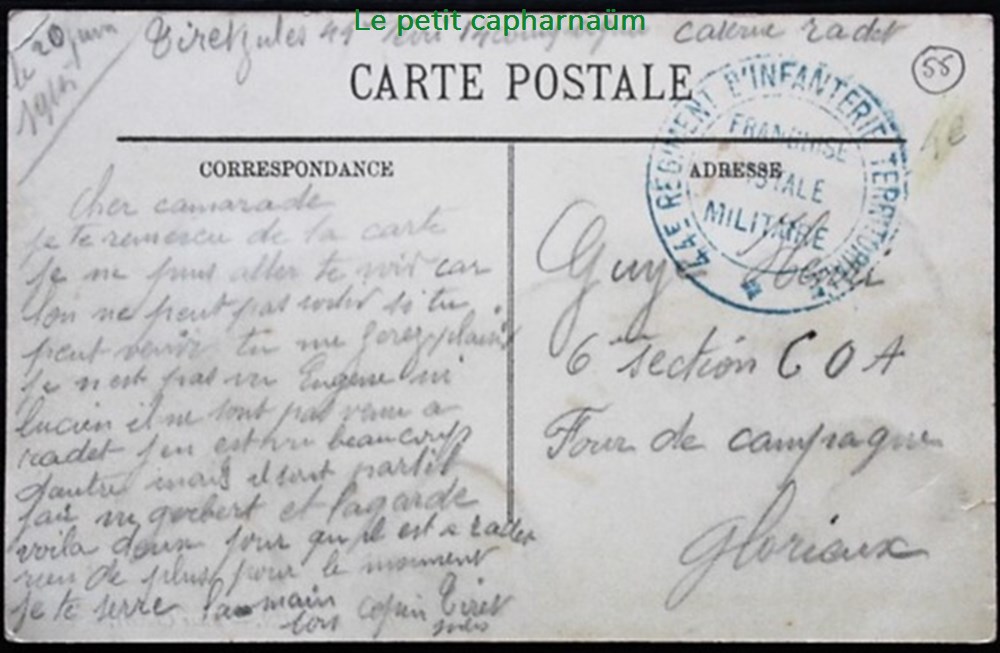 Le petit capharnaüm
le 20 juin 1915
Tiret jules 44 caserne radet
CARTE POSTALE
55
1e
44E REGIMENT D'INFANTERIE TERRITORIALE
FRANCHISE
POSTALE
MILITAIRE
CORRESPONDANCE
cher camarade
je te remercu de la carte
je ne puis aller te voir car
lon ne peut pas sortir si tu
peut venir tu me ferez plaisir
je nest pas vu Eugene ni
lucien il ne sont pas venu a
radet jen est vu beaucoup
dautre mais il sont partit
jai vu gerbert et lagarde
voila deux jour qu'il est a radet
rien de plus pour le moment
je te serre la main ton copin Tiret
jules
ADRESSE
Guye Henri
6 section C O A
Four de campagne
Glorieux